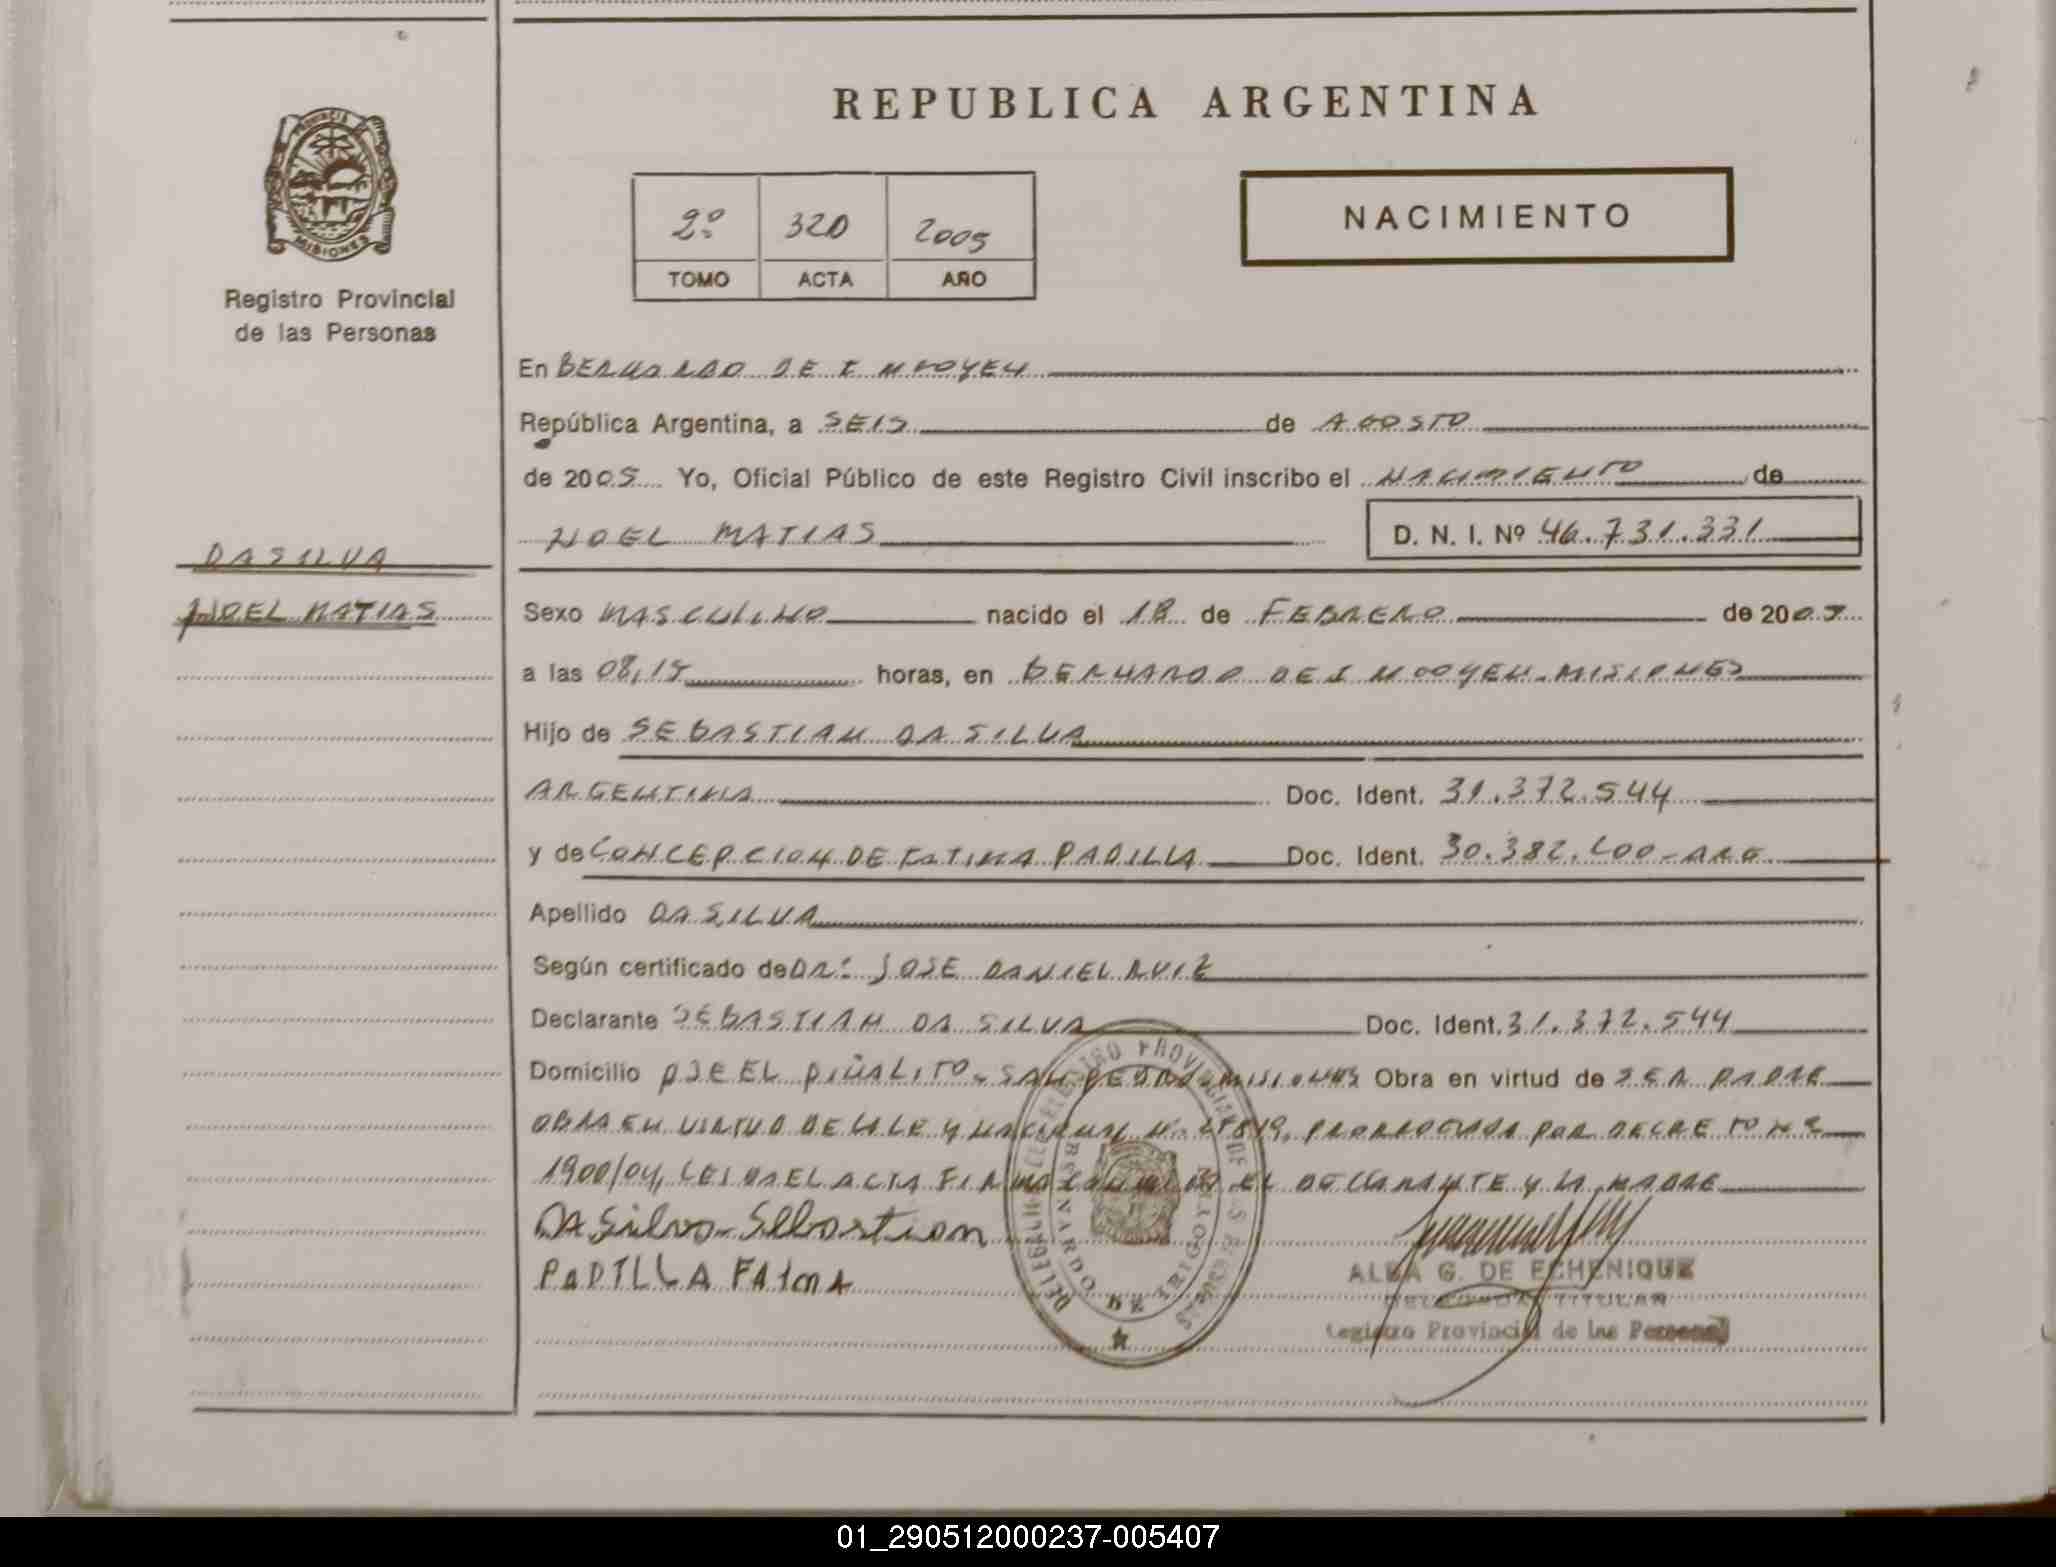 REPUBLICA ARGENTINA
PROVINCIA DE
MISIONES
Registro Provincial
de las Personas
2º 320 2005
TOMO ACTA AÑO
NACIMIENTO
En BERNARDO DE IRIGOYEN
República Argentina, a SEIS de AGOSTO
de 2005 Yo, Oficial Público de este Registro Civil inscribo el NACIMIENTO de
NOEL MATIAS D. N. I. Nº 46.731.331
DA SILVA
NOEL MATIAS
Sexo MASCULINO nacido el 18 de FEBRERO de 2005
a las 08,15 horas, en BERNARDO DE IRIGOYEN-MISIONES
Hijo de SEBASTIAN DA SILVA
ARGENTINA Doc. Ident. 31.372.544
y de CONCEPCION DE FATIMA PADILLA Doc. Ident. 30.382.600-ARG
Apellido DA SILVA
Según certificado de DR: JOSE DANIEL RUIZ
Declarante SEBASTIAN DA SILVA Doc. Ident. 31.372.544
Domicilio PJE EL PIÑALITO-SAN PEDRO-MISIONES Obra en virtud de SER PADRE
OBRA EN VIRTUD DE LA LEY NACIONAL Nº 25819, PRORROGADA POR DECRETO Nº
1900/04, LEIDA EL ACTA FIRMA CONMIGO EL DECLARANTE Y LA MADRE
DA Silva-Sebastian
PADILLA FATIMA
DELEGACION REGISTRO PROVINCIAL DE LAS PERSONAS
BERNARDO DE IRIGOYEN
ALBA G. DE ECHENIQUE
DELEGADA TITULAR
Registro Provincial de las Personas
01_290512000237-005407